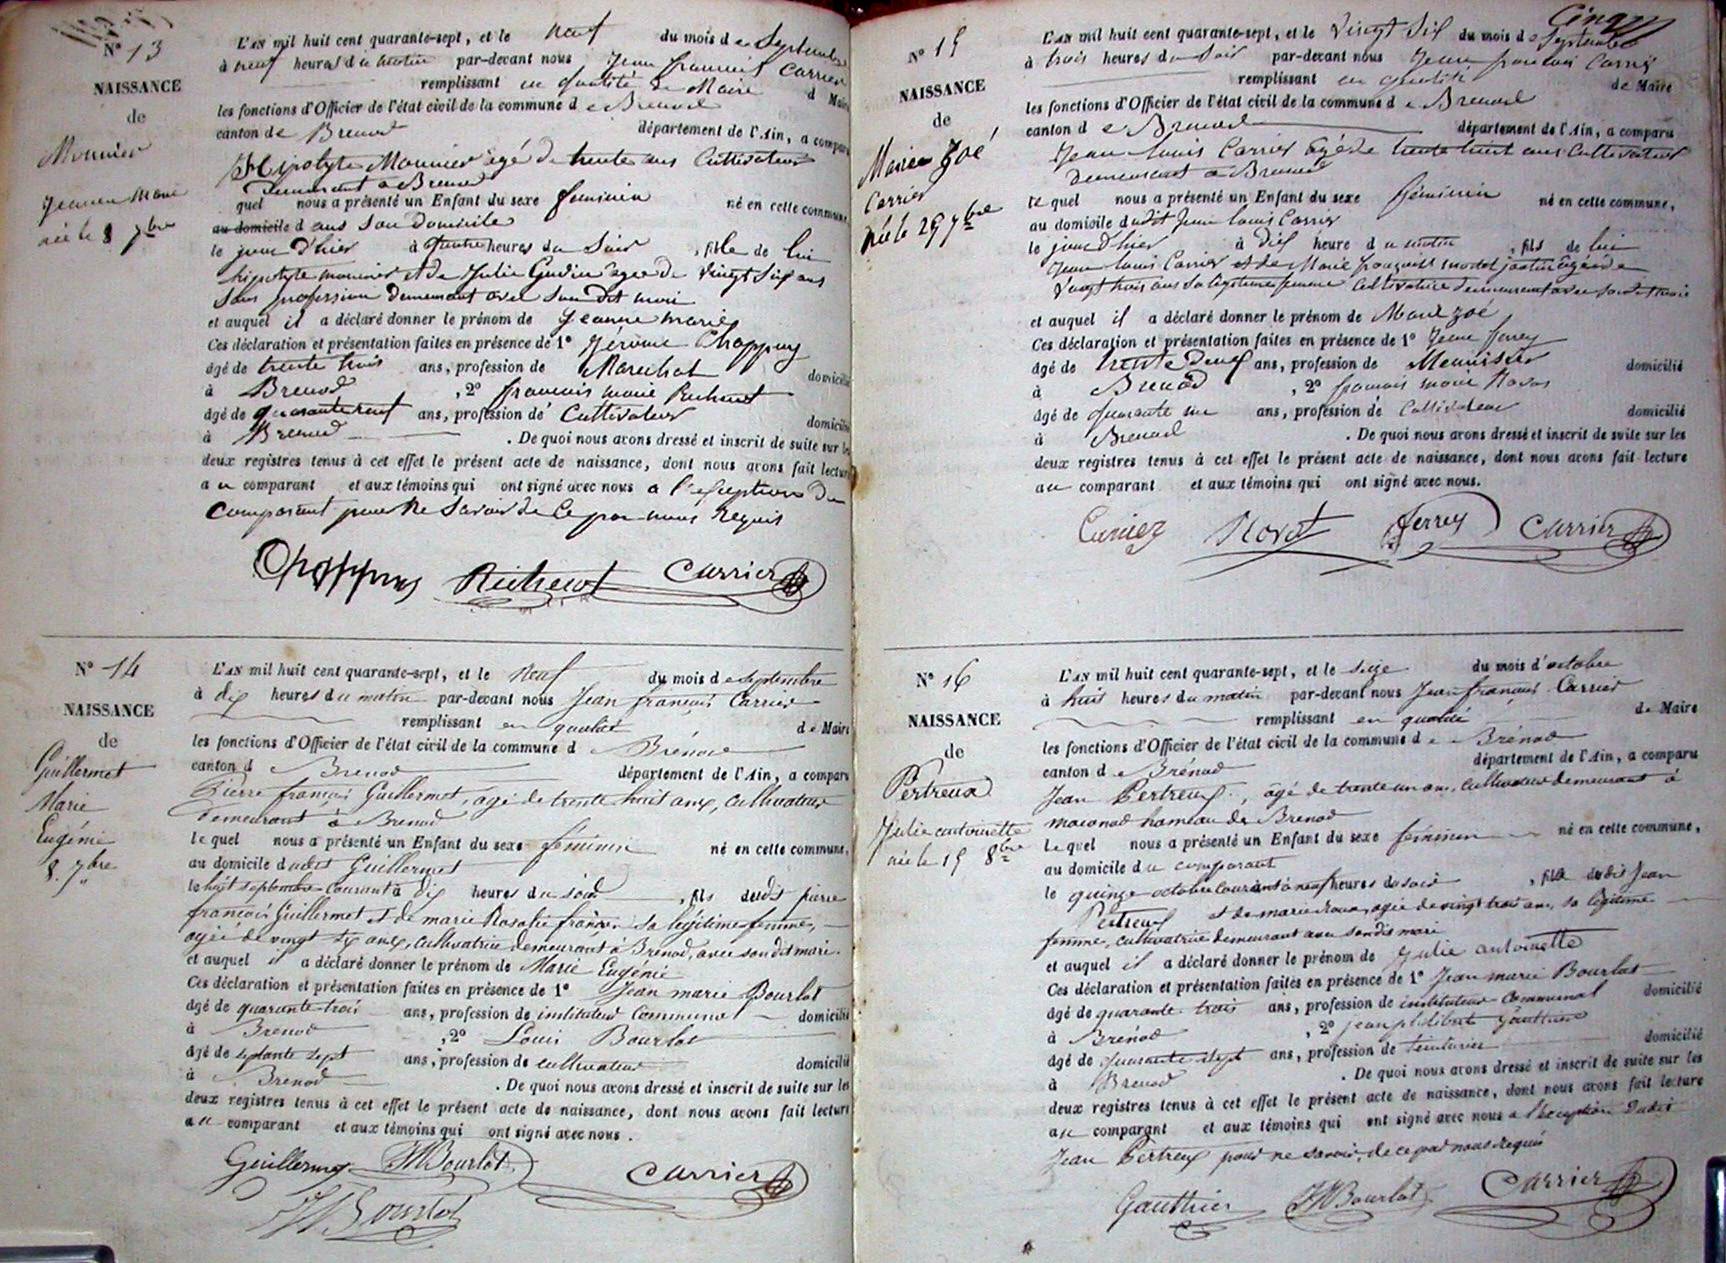 N° 13
NAISSANCE
de
Monnier
Jeanne Marie
née le 8 7bre
L'AN mil huit cent quarante-sept, et le neuf du mois de Septembre
à neuf heures du matin par-devant nous Jean françois Carrier
remplissant en qualité de Maire d Maire
les fonctions d'Officier de l'état civil de la commune de Brenod
canton de Brenod département de l'Ain, a comparu
Hipolyte Monnier agé de trente ans Cultivateur
demeurant a Brenod
quel nous a présenté un Enfant du sexe feminin né en cette commune,
au domicile dans son domicile
le jour d'hier à quatre heures du Soir, fille de lui
hipolyte monnier et de Julie Gudin agée de vingt six ans
sans profession demeurant avec son dit mari
et auquel il a déclaré donner le prénom de Jeanne marie
Ces déclaration et présentation faites en présence de 1° Jérome Chappuy
âgé de trente trois ans, profession de Marechal domicilié
à Brenod, 2° francois marie Richerot
âgé de quarante neuf ans, profession de Cultivateur domicilié
à Brenod. De quoi nous avons dressé et inscrit de suite sur les
deux registres tenus à cet effet le présent acte de naissance, dont nous avons fait lecture
au comparant et aux témoins qui ont signé avec nous a l'exception du
Comparant pour ne savoir de ce par nous requis
Richerot Carrier
N° 14
NAISSANCE
de
Guillermet
Marie
Eugénie
8. 7bre
L'AN mil huit cent quarante-sept, et le neuf du mois de septembre
à dix heures du matin par-devant nous Jean françois Carrier
remplissant en qualité de Maire
les fonctions d'Officier de l'état civil de la commune de Brénod
canton de Brenod département de l'Ain, a comparu
Pierre françois Guillermet, agé de trente huit ans, cultivateur
demeurant à Brenod
lequel nous a présenté un Enfant du sexe féminin né en cette commune,
au domicile dudit Guillermet
le huit septembre courant à dix heures du soir, fils dudit pierre
françois Guillermet et de marie Rosalie françon sa légitime femme,
agée de vingt six ans, cultivatrice demeurant à Brenod, avec son dit mari.
et auquel il a déclaré donner le prénom de Marie Eugénie
Ces déclaration et présentation faites en présence de 1° Jean marie Bourlot
âgé de quarante trois ans, profession de instituteur Communal domicilié
à Brenod, 2° Louis Bourlot
âgé de septante sept ans, profession de cultivateur domicilié
à Brenod. De quoi nous avons dressé et inscrit de suite sur les
deux registres tenus à cet effet le présent acte de naissance, dont nous avons fait lecture
au comparant et aux témoins qui ont signé avec nous.
Guillermet JMBourlot Carrier
Bourlot
Cinq
N° 15
NAISSANCE
de
Marie Zoé
Carrier
née le 25 7bre
L'AN mil huit cent quarante-sept, et le Vingt Six du mois de Septembre
à trois heures du Soir par-devant nous Jean francois Carrier
remplissant en qualité de Maire
les fonctions d'Officier de l'état civil de la commune de Brenod
canton de Brenod département de l'Ain, a comparu
Jean louis Carrier agé de trente huit ans Cultivateur
demeurant a Brenod
le quel nous a présenté un Enfant du sexe féminin né en cette commune,
au domicile dudit Jean louis Carrier
le jour d'hier à dix heure du matin, fils de lui
Jean louis Carrier et de Marie françoise agée de
Vingt trois ans sa légitime femme Cultivatrice demeurant avec son dit mari
et auquel il a déclaré donner le prénom de Marie zoé
Ces déclaration et présentation faites en présence de 1° Jean ferrey
âgé de trente neuf ans, profession de Menuisier domicilié
à Brenod, 2° francois marie
âgé de quarante ans, profession de Cultivateur domicilié
à Brenod. De quoi nous avons dressé et inscrit de suite sur les
deux registres tenus à cet effet le présent acte de naissance, dont nous avons fait lecture
au comparant et aux témoins qui ont signé avec nous.
Carrier ferrey Carrier
N° 16
NAISSANCE
de
Pertreux
Julie antoinette
née le 15 8bre
L'AN mil huit cent quarante-sept, et le seize du mois d'octobre
à huit heures du matin par-devant nous Jean françois Carrier
remplissant en qualité de Maire
les fonctions d'Officier de l'état civil de la commune de Brénod
canton de Brénod département de l'Ain, a comparu
Jean Pertreux, agé de trente un ans, cultivateur demeurant à
maconod hameau de Brenod
le quel nous a présenté un Enfant du sexe féminin né en cette commune,
au domicile du comparant
le quinze octobre courant à neuf heures du soir, fille dudit Jean
Pertreux et de marie agée de vingt trois ans, sa légitime
femme, cultivatrice demeurant avec son dit mari
et auquel il a déclaré donner le prénom de Julie antoinette
Ces déclaration et présentation faites en présence de 1° Jean marie Bourlot
âgé de quarante trois ans, profession de instituteur Communal domicilié
à Brénod, 2° jean philibert Gauthier
âgé de quarante sept ans, profession de teinturier domicilié
à Brenod. De quoi nous avons dressé et inscrit de suite sur les
deux registres tenus à cet effet le présent acte de naissance, dont nous avons fait lecture
au comparant et aux témoins qui ont signé avec nous a l'exception dudit
Jean Pertreux pour ne savoir, de ce par nous requis
Gauthier JMBourlot Carrier